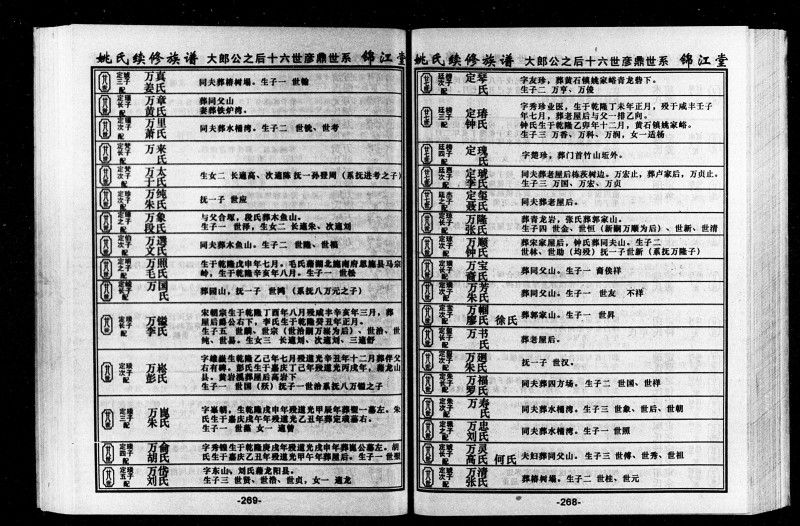 姚氏续修族谱 大郎公之后十六世彦鼎世系 锦江堂
廿七世 廷榜次子 配 定琴 氏 字友珍，葬黄石镇姚家峪青龙砦下。
生子二 万亨、万俊
廿七世 廷榜三子 配 定璿 钟氏 字秀珍业医，生于乾隆丁未年正月，殁于咸丰壬子
年七月，葬老屋后与父一排乙向。
钟氏生于乾隆乙卯年十二月，黄石镇姚家峪。
生子三 万香、万科、万润，女一 适杨
廿七世 廷榜四子 配 定瑰 氏 字楚珍，葬门首竹山垢外。
定琥 李氏 同夫葬老屋后栋茨树边。万宏止，葬卢家后，万贞止。
生子三 万国、万宏、万贞
定玺 聂氏 同夫葬老屋后。
廿八世 万隆 张氏 葬青龙岩，张氏葬郭家山。
生子四 世金、世恒（新嗣万顺为后）、世新、世清
廿八世 万顺 钟氏 葬宋家屋后，钟氏葬同夫山。生子二
世林、世助（均殁）抚一子世新（系抚万隆子）
廿八世 万宝 裔氏 葬同父山。生子一 裔俟祥
廿八世 万芳 朱氏 葬同父山。生子一 世友 不祥
廿八世 万帼 廖氏 徐氏 葬郭家山。生子一 世昇
廿八世 万书 氏 葬老屋后。
廿八世 万迥 朱氏 抚一子 世汉。
廿八世 万福 罗氏 同夫葬四方场。生子二 世国、世祥
廿八世 万寿 氏 同夫葬水桶湾。生子三 世象、世后、世朝
廿八世 万忠 刘氏 同夫葬水桶湾。生子一 世照
廿八世 万灵 高氏 何氏 夫妇葬同父山。生子三 世傅、世秀、世祖
廿八世 万清 张氏 葬椿树塌。生子二 世柱、世元
-268-
姚氏续修族谱 大郎公之后十六世彦鼎世系 锦江堂
廿八世 万真 姜氏 同夫葬椿树塌。生子一 世翰
廿八世 万章 黄氏 葬同父山
妻葬铁炉湾。
廿八世 万里 萧氏 同夫葬水桶湾。生子二 世铁、世考
廿八世 万来 氏
廿八世 万太 于氏 生女二 长適高、次適陈 抚一孙登周（系抚进考之子）
廿八世 万纯 朱氏 抚一子 世应
廿八世 万象 段氏 与父合塚，段氏葬木鱼山。
生子一 世泽，生女二 长適朱、次適刘
廿八世 万遇 文氏 同夫葬木鱼山。生子二 世熊、世福
廿八世 万照 毛氏 生于乾隆戊申年七月。毛氏葬湖北施南府恩施县马宗
岭，生于乾隆辛亥年八月。生子一 世松
廿八世 万国 氏 葬同山，抚一子 世鸿（系八万元之子）
廿八世 万镒 李氏 宋朝宗生于乾隆丁酉年八月殁咸丰辛亥年三月，葬
屋后爵公右下，李氏生于乾隆癸丑年正月。
生子五 世麟、世宗（世治嗣万崧为后）、世治、世
纯、世易。生女三 长適刘、次適刘、三適舒
廿八世 万崧 彭氏 字维嶽生于乾隆乙巳年七月殁道光辛丑年十二月葬伴父
右有碑。彭氏生于嘉庆丁巳年殁道光丙戌年，葬龙山
县。黄岩溪葬屋后高岩下
生子一 世国（殀）抚子一世治系抚八万镒之子
廿八世 万崑 朱氏 字峯朝，生乾隆戊申年殁道光甲辰年葬聖一墓左。朱
氏生于嘉庆戌午年殁道光乙丑年葬定璜墓右。
生子一 世藻 女一 適曾
廿八世 万仑 胡氏 字秀锦生于乾隆庚戌年殁道光戌申年葬崑公墓左。胡
氏生于嘉庆乙丑年殁道光甲午年葬屋后。生子一 世聖
廿八世 万岱 刘氏 字东山，刘氏葬龙阳县。
生子三 世贤、世浩、世贞，女一 適龙
-269-